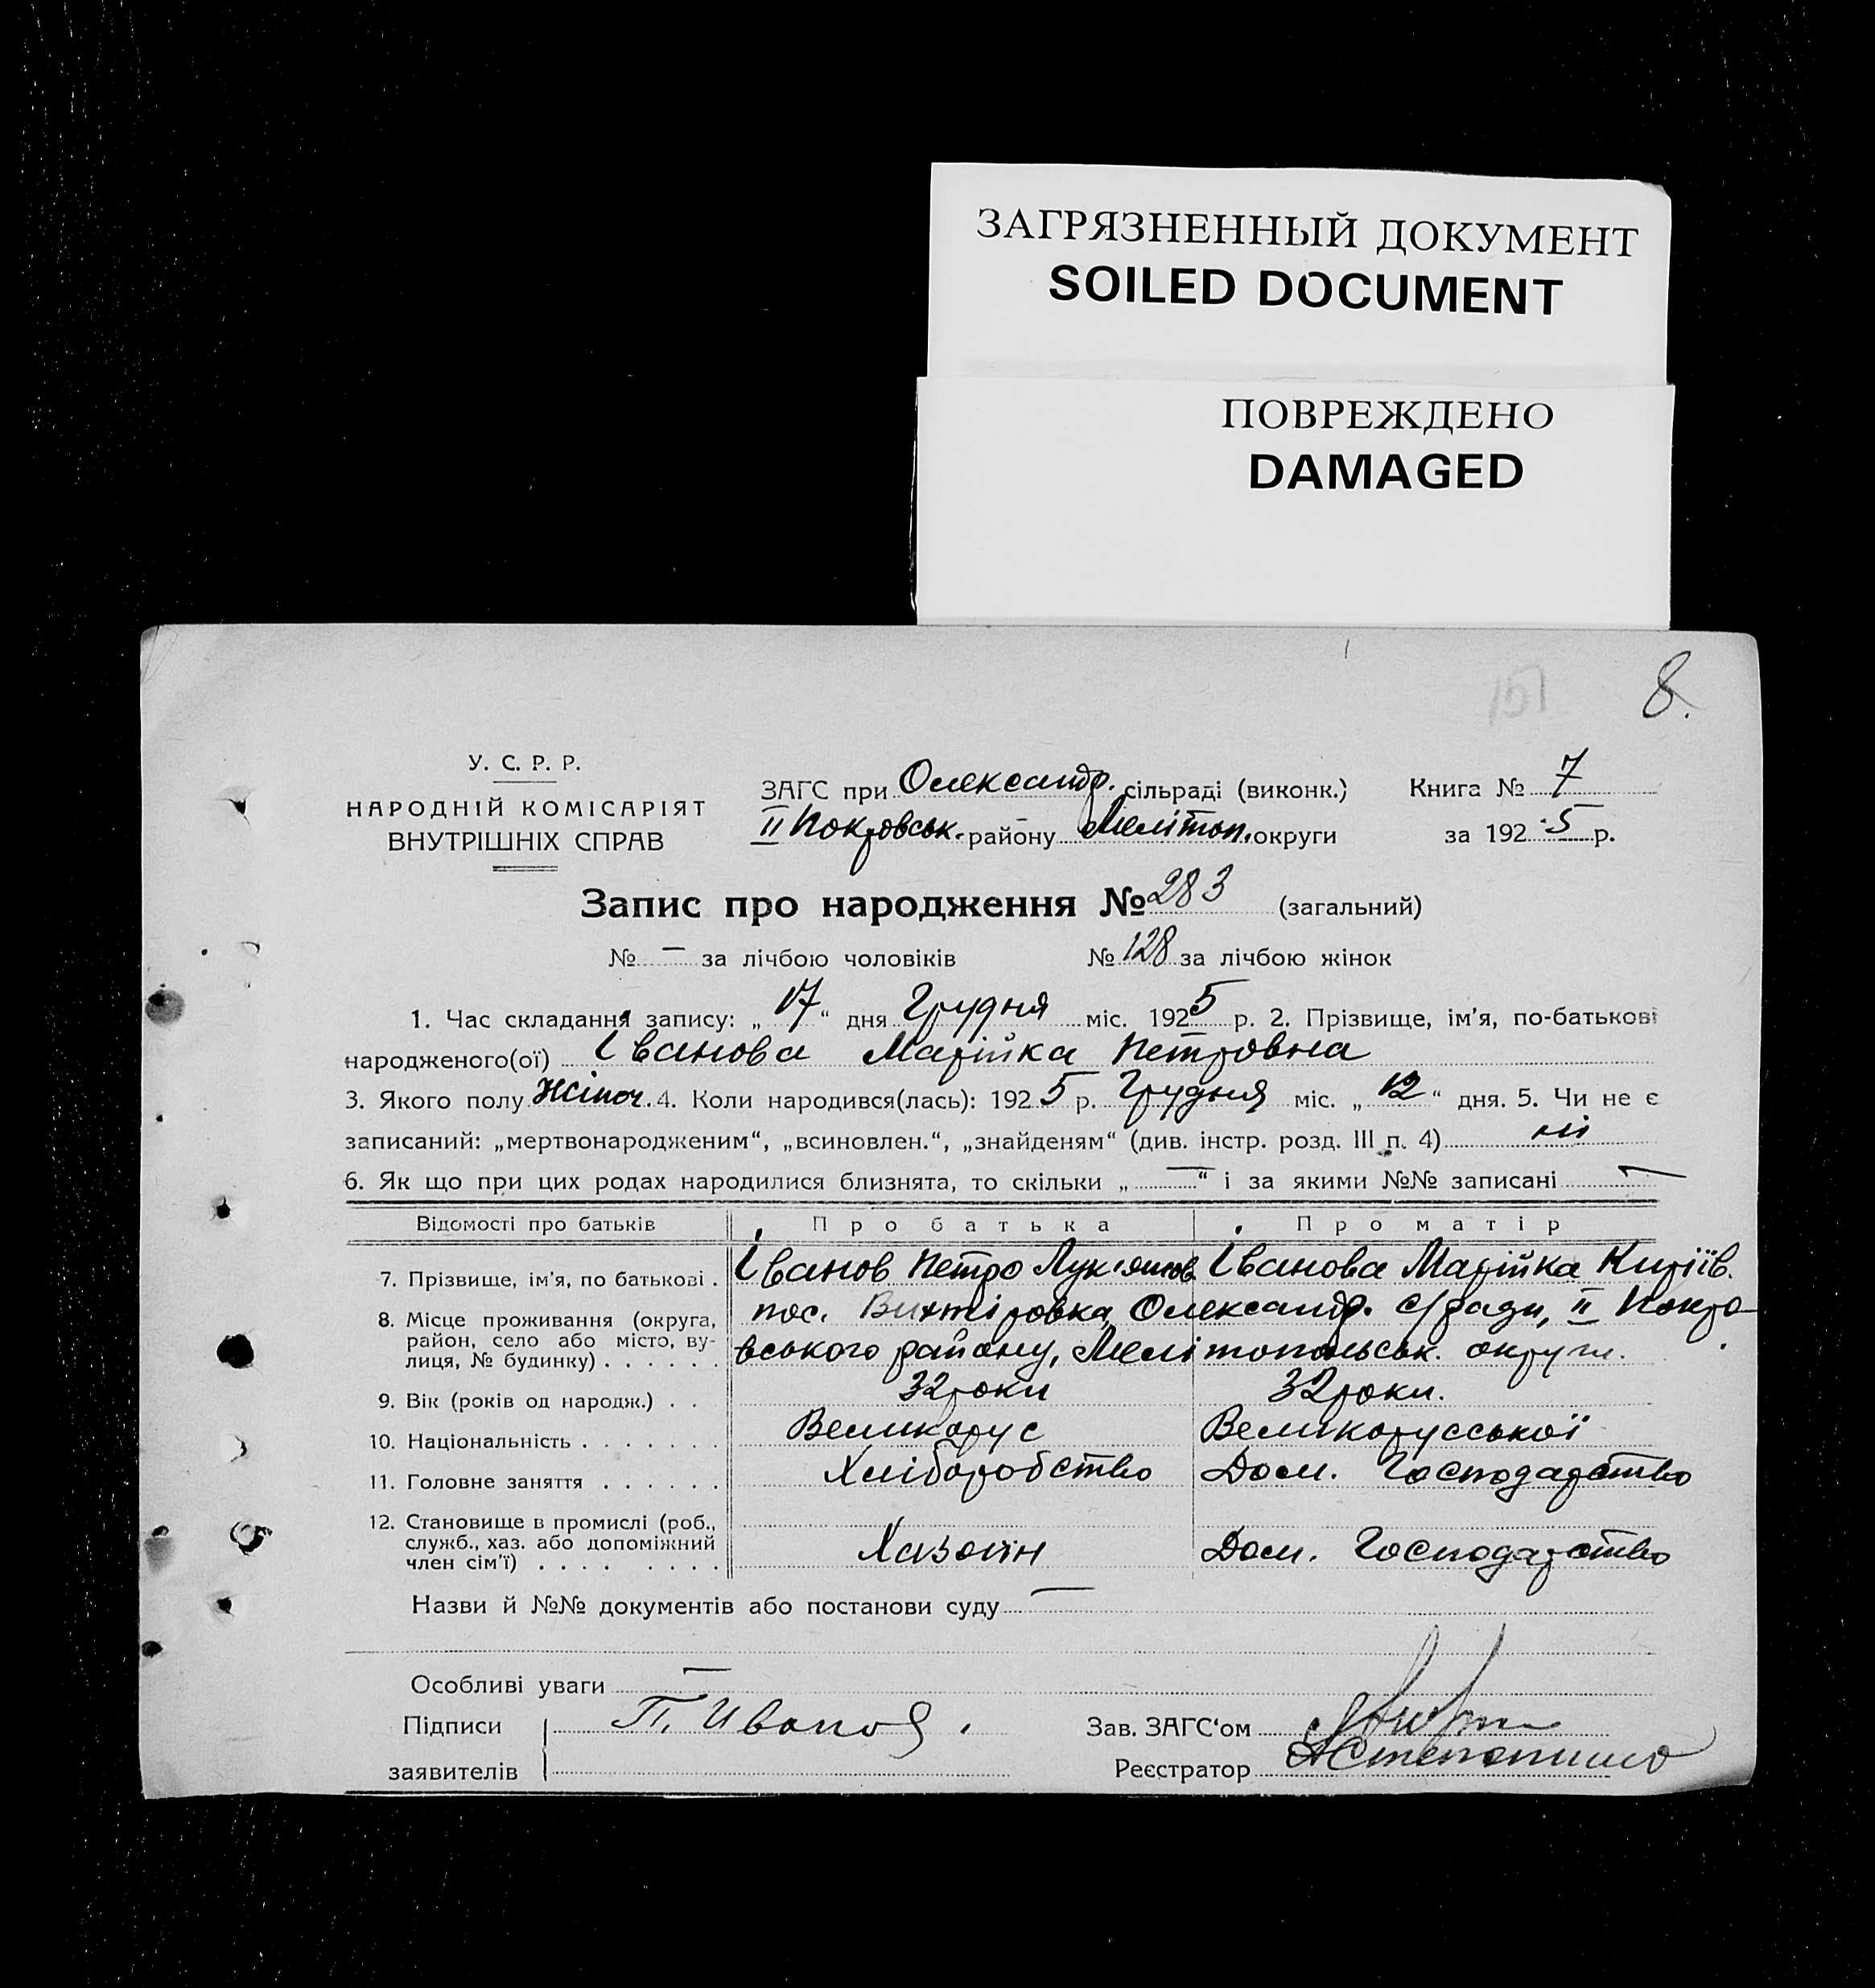 ЗАГРЯЗНЕННЫЙ ДОКУМЕНТ
SOILED DOCUMENT
ПОВРЕЖДЕНО
DAMAGED
151 8.
У. С. Р. Р.
НАРОДНІЙ КОМІСАРІЯТ
ВНУТРІШНІХ СПРАВ
ЗАГС при Олександр. сільраді (виконк.) Книга № 7
II Покровськ. району Мелітоп. округи за 1925 р.
Запис про народження № 283 (загальний)
№ — за лічбою чоловіків № 128 за лічбою жінок
1. Час складання запису: „17“ дня Грудня міс. 1925 р. 2. Прізвище, ім'я, по-батькові
народженого(ої) Іванова Марійка Петровна
3. Якого полу жіноч. 4. Коли народився(лась): 1925 р. Грудня міс. „12“ дня. 5. Чи не є
записаний: „мертвонародженим“, „всиновлен.“, „знайденям“ (див. інстр. розд. III п. 4) ні
6. Як що при цих родах народилися близнята, то скільки „—“ і за якими №№ записані —
Відомості про батьків Про батька Про матір
7. Прізвище, ім'я, по батькові . Іванов Петро Лук'янов. Іванова Марійка Киріїв.
8. Місце проживання (округа, район, село або місто, вулиця, № будинку) . . . . . . пос. Вихтіровка, Олександр. с/ради, II Покро-
вського району, Мелітопольськ. округи.
9. Вік (років од народж.) . . 32 роки 32 роки.
10. Національність . . . . . . . Великорус Великорусської
11. Головне заняття . . . . . . Хліборобство Дом. Господарство
12. Становище в промислі (роб.,
служб., хаз. або допоміжний
член сім'ї) . . . . . . . . Хазоїн Дом. Господарство
Назви й №№ документів або постанови суду —
Особливі уваги —
Підписи П. Иванов. Зав. ЗАГС'ом
заявителів Реєстратор